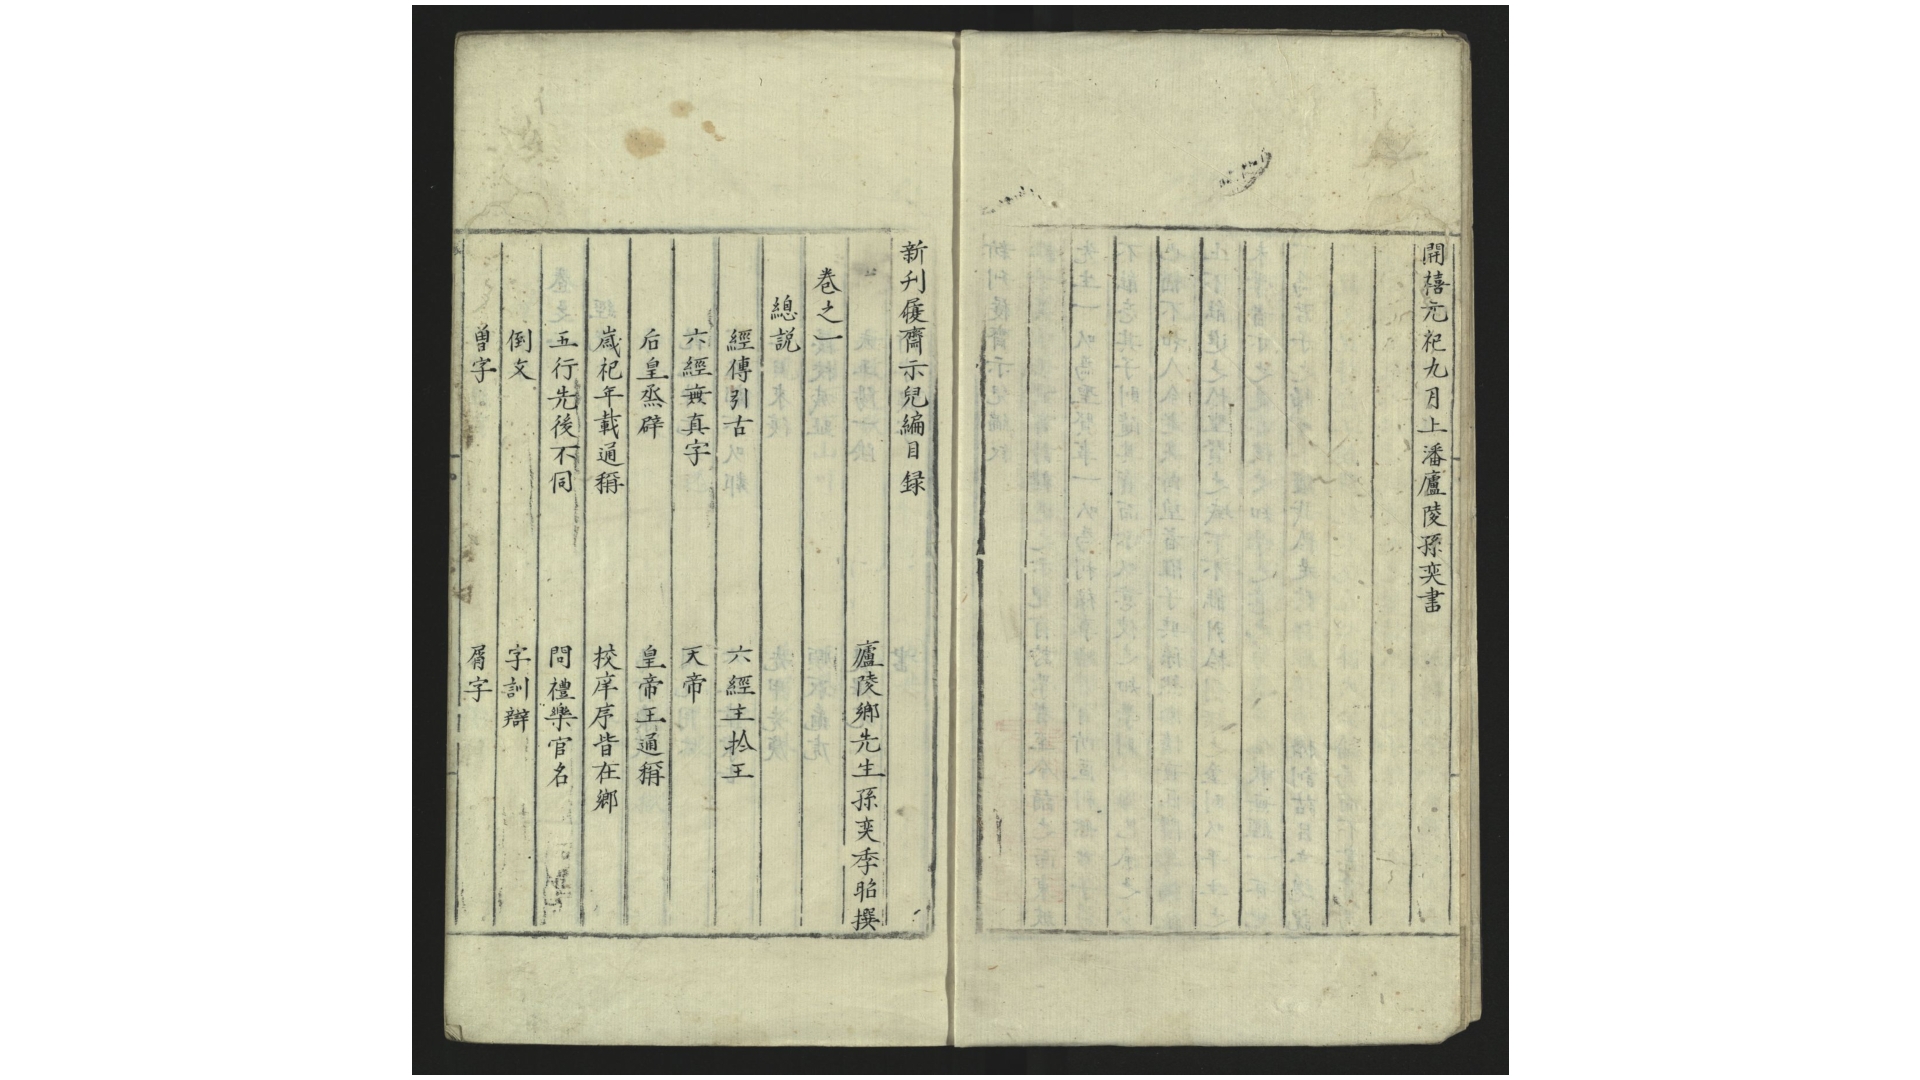 開禧元祀九月上潘廬陵孫奕書
新刊履齋示兒編目録
廬陵鄉先生孫奕季昭撰
卷之一
總説
經傳引古
六經主扵王
六經無真字
天帝
后皇烝辟
皇帝王通稱
歲祀年載通稱
校庠序皆在鄉
五行先後不同
問禮樂官名
倒文
字訓辯
曽字
屑字